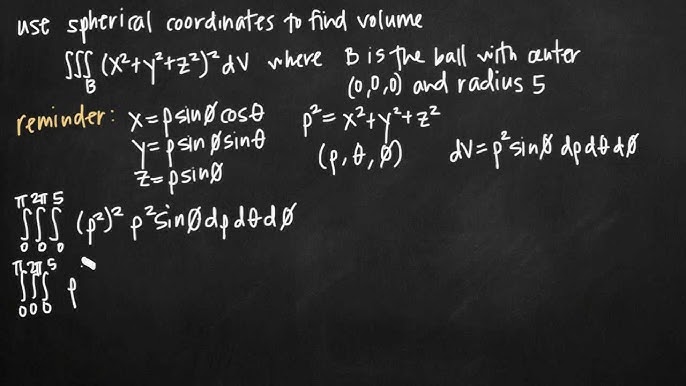 use spherical coordinates to find volume
∭_B (x²+y²+z²)² dV where B is the ball with center
(0,0,0) and radius 5
reminder: x=ρsinØcosθ ρ²=x²+y²+z²
y=ρsinØsinθ (ρ,θ,Ø) dV=ρ²sinØ dρdθdØ
z=ρsinØ
∫₀^π ∫₀^2π ∫₀^5 (ρ²)² ρ²sinØdρdθdØ
∫₀^π ∫₀^2π ∫₀^5 ρ